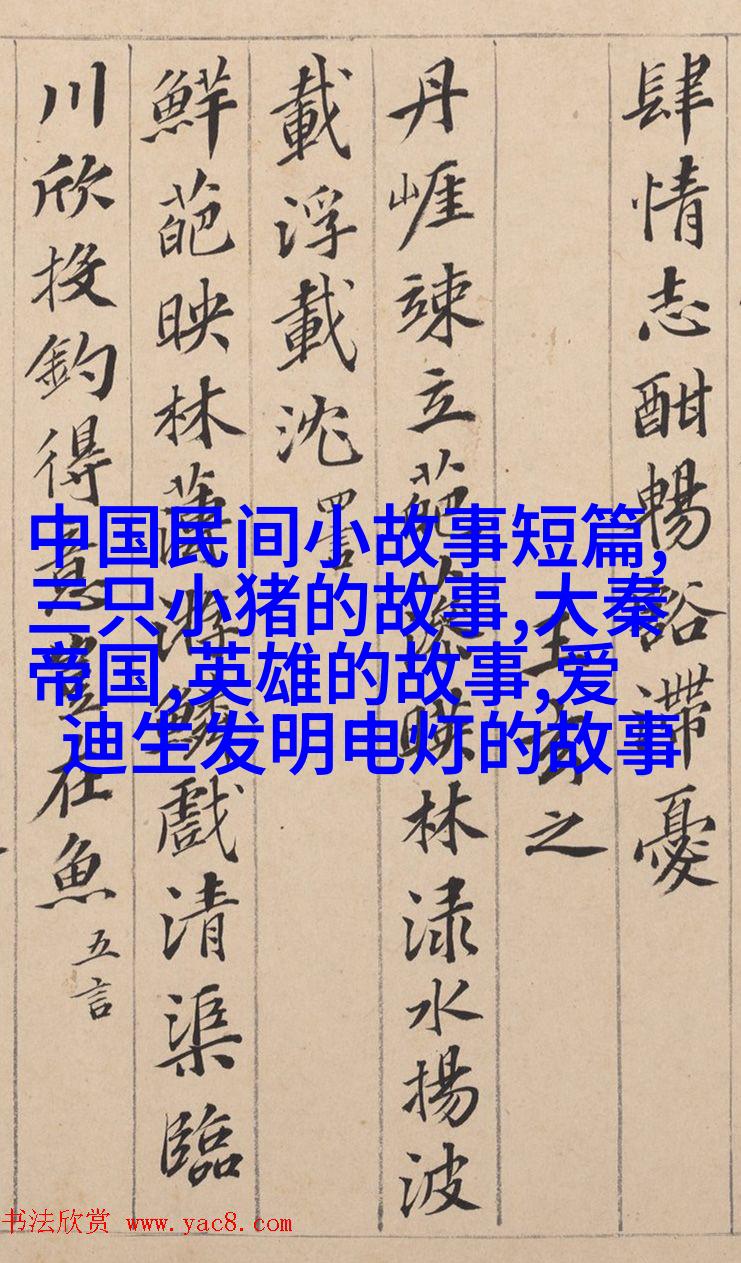 肆情志酣暢豁滯憂
王玄之
丹崕竦立葩藻暎林渌水揚波
載浮載沈 四言
鮮葩映林薄游鱗戲清渠臨
川欣投釣得意豈在魚 五言
中国民间小故事短篇,
三只小猪的故事,大秦
帝国,英雄的故事,爱
迪生发明电灯的故事
书法欣赏 www.yac8.com